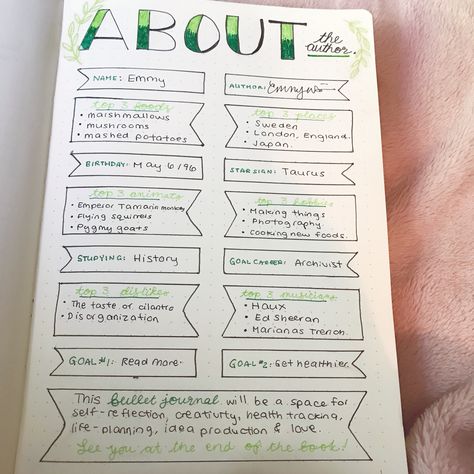 ABOUT the author.
NAME: Emmy
AUTHOR:
top 3 foods
• marshmallows
• mushrooms
• mashed potatoes
top 3 places
• Sweden
• London, England.
• Japan.
BIRTHDAY: May 6/96
STAR SIGN: Taurus
top 3 animals
• Emperor Tamarin monkey
• Flying squirrels
• Pygmy goats
top 3 hobbies
• Making things
• Photography.
• Cooking new foods.
STUDYING: History
GOAL CAREER: Archivist
top 3 dislikes
• The taste of cilantro
• Disorganization
top 3 musicians
• Haux
• Ed Sheeran
• Marianas Trench.
GOAL #1: Read more.
GOAL #2: Get healthier.
This bullet journal will be a space for
self-reflection, creativity, health tracking,
life-planning, idea production & love.
See you at the end of the book!